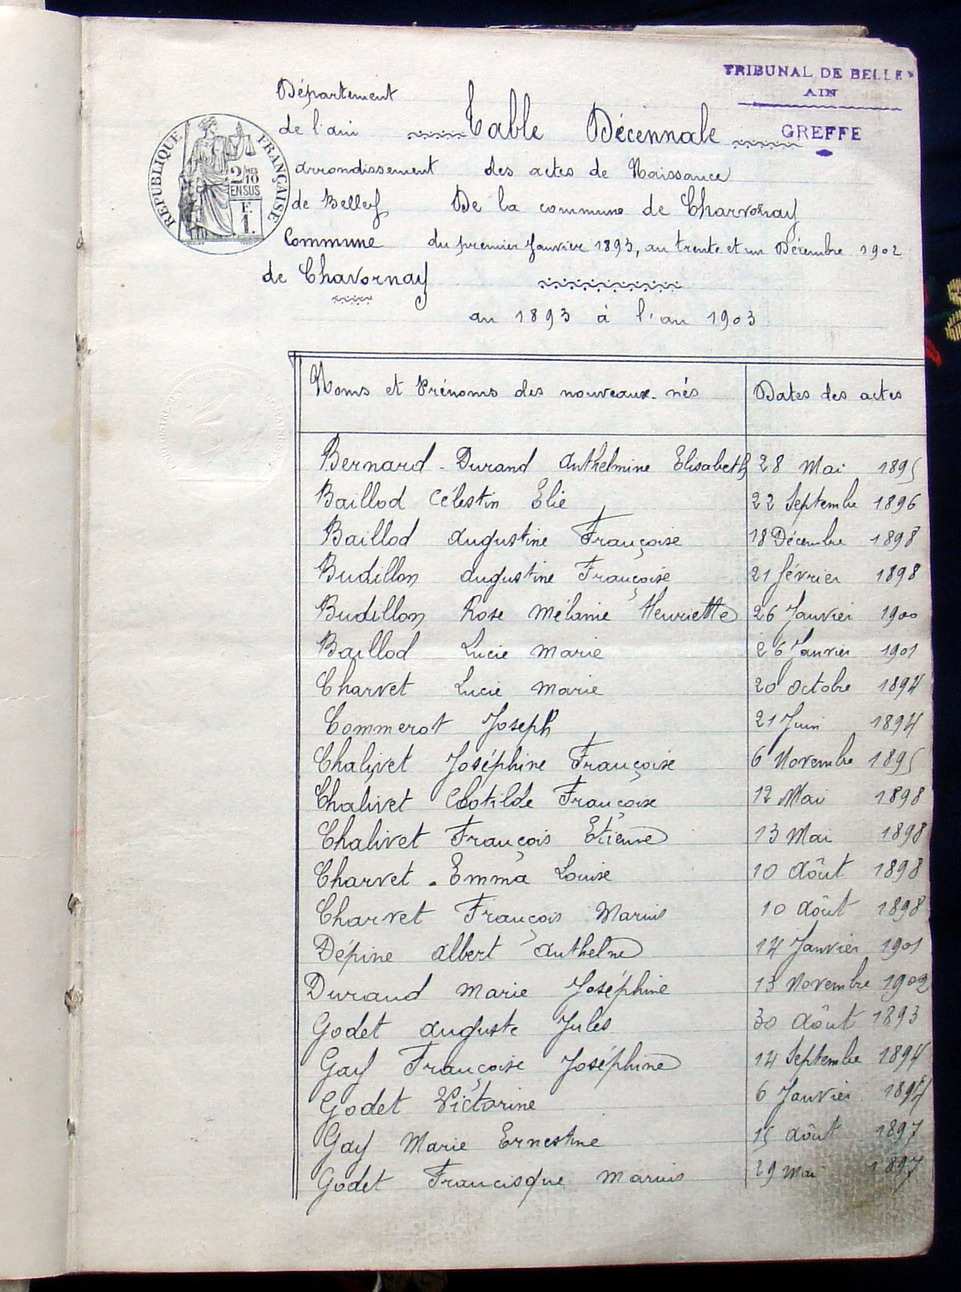 TRIBUNAL DE BELLEY
AIN
GREFFE
RÉPUBLIQUE FRANÇAISE
2/10 EN SUS
F.
1.
Département
de l'ain
arrondissement
de Belley
Commune
de Chavornay
Table Décennale
des actes de Naissance
De la commune de Charvornay
du premier Janvier 1893, au trente et un Décembre 1902
an 1893 à l'an 1903
Noms et Prénoms des nouveaux-nés Dates des actes
Bernard-Durand Anthelmine Elisabeth 28 Mai 1895
Baillod Célestin Elie 22 Septembre 1896
Baillod Augustine Françoise 18 Décembre 1898
Budillon Augustine Françoise 21 février 1898
Budillon Rose Mélanie Henriette 26 Janvier 1900
Baillod Lucie Marie 26 Janvier 1901
Charvet Lucie Marie 20 Octobre 1894
Commerot Joseph 21 Juin 1894
Chalivet Joséphine Françoise 6 Novembre 1895
Chalivet Clotilde Françoise 12 Mai 1898
Chalivet François Etienne 13 Mai 1898
Charvet Emma Louise 10 Août 1898
Charvet François Marius 10 Août 1898
Dépine Albert Anthelme 14 Janvier 1901
Durand Marie Joséphine 13 Novembre 1902
Godet Auguste Jules 30 Août 1893
Gay Françoise Joséphine 14 Septembre 1894
Godet Victorine 6 Janvier 1894
Gay Marie Ernestine 15 Août 1897
Godet Francisque Marius 29 Mai 1897